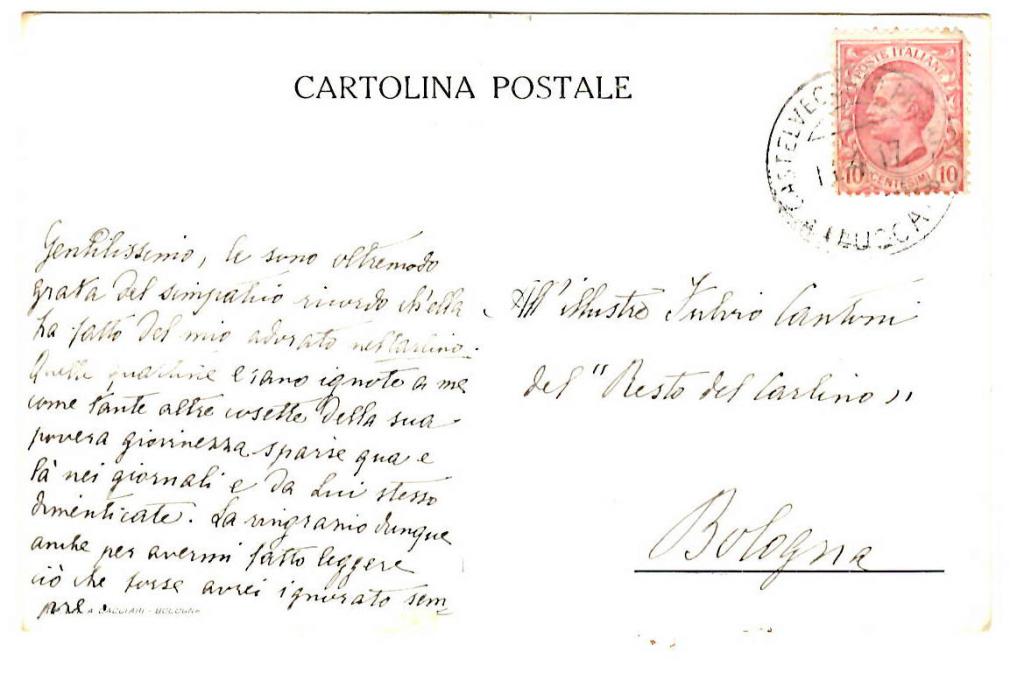 CARTOLINA POSTALE
POSTE ITALIANE
10 CENTESIMI 10
CASTELVECCHIO
17
LUCCA
Gentilissimo, le sono oltremodo
grata del simpatico ricordo ch'ella
ha fatto del mio adorato nel Carlino.
Quelle quartine erano ignote a me
come tante altre cosette della sua
povera giovinezza sparse qua e
là nei giornali e da Lui stesso
dimenticate. La ringrazio dunque
anche per avermi fatto leggere
ciò che forse avrei ignorato sem-
pre.
All'illustre Fulvio Cantoni
del "Resto del Carlino"
Bologna
CACCIARI - BOLOGNA